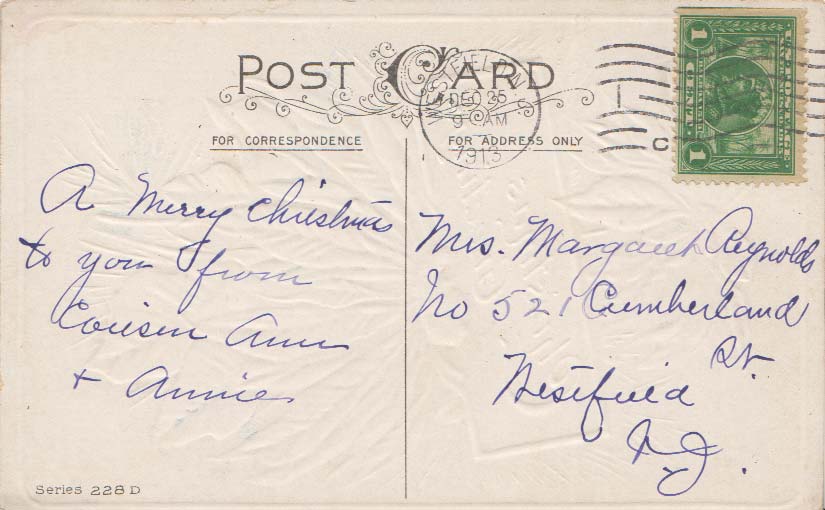 POST CARD
FOR CORRESPONDENCE
FOR ADDRESS ONLY
WESTFIELD, N.J.
DEC 25
9 AM
1913
1
C
1
A Merry Christmas
to you from
Cousin Ann
+ Annie
Mrs. Margaret Reynolds
No 521 Cumberland
St.
Westfield
N.J.
Series 228 D